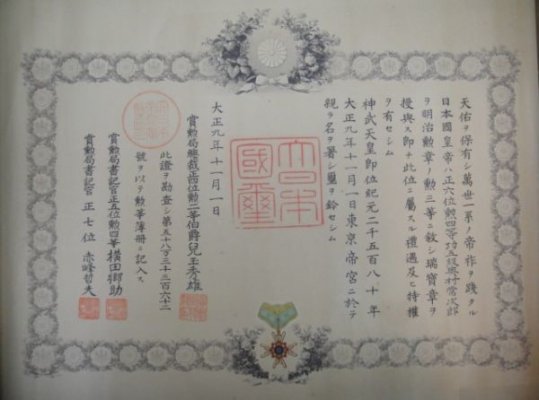 天佑ヲ保有シ萬世一系ノ帝祚ヲ踐タル
日本國皇帝ハ正六位勲四等功五級奥村常次郎
ヲ明治勲章ノ勲三等ニ敍シ瑞寶章ヲ
授與ス即チ此位ニ屬スル禮遇及ヒ特權
ヲ有セシム
神武天皇即位紀元二千五百八十年
大正九年十一月一日東京帝宮ニ於テ
親ラ名ヲ署シ璽ヲ鈐セシム
大日本國璽
大正九年十一月一日
賞勲局總裁正四位勲二等伯爵兒玉秀雄
此證ヲ勘査シ第五十八万三千二百六十二
號ヲ以テ勲等簿册ニ記入ス
賞勲局書記官正五位勲四等横田郷助
賞勲局書記官正七位赤峰哲夫